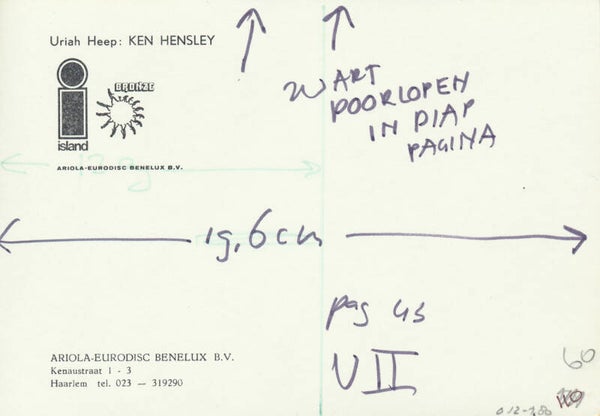 Uriah Heep: KEN HENSLEY
BRONZE
island
ARIOLA-EURODISC BENELUX B.V.
ZWART
DOORLOPEN
IN DIAP
PAGINA
19,6 cm
pag 43
VII
ARIOLA-EURODISC BENELUX B.V.
Kenaustraat 1 - 3
Haarlem tel. 023 — 319290
60